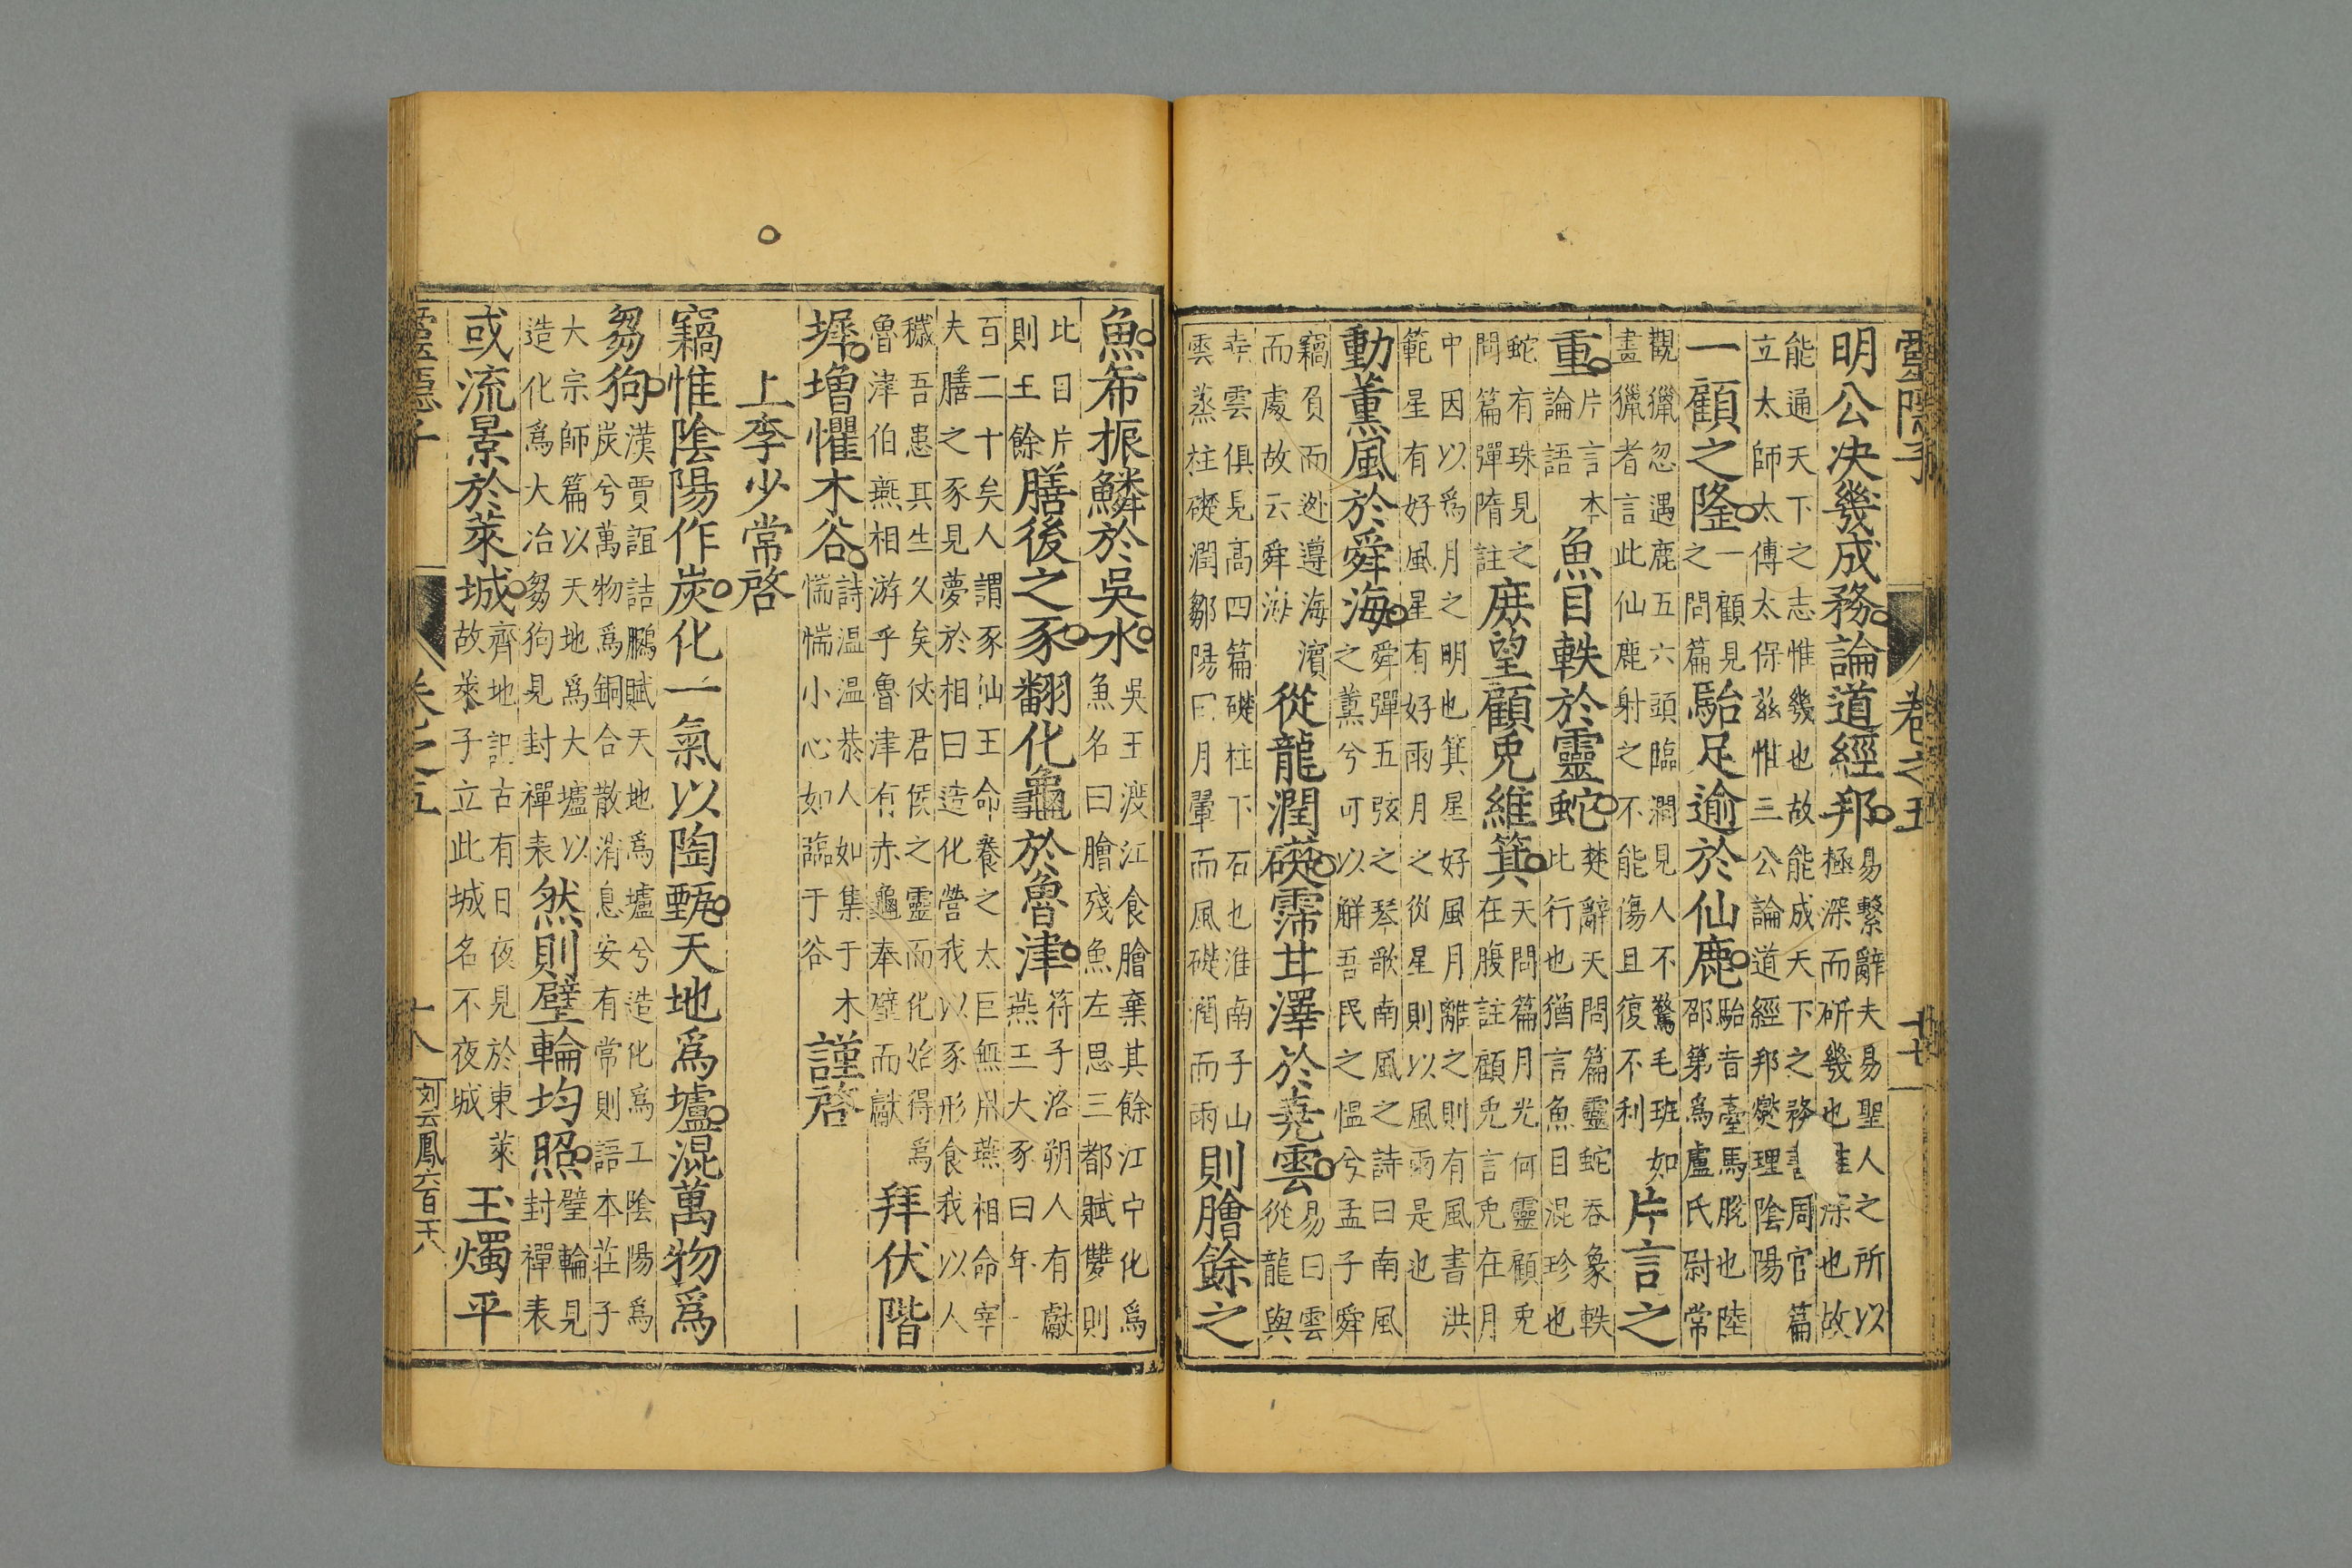 靈隱子
卷之五
十七
明公决幾成務論道經邦易繫辭夫易聖人之所以極深而研幾也惟深也故
能通天下之志惟幾也故能成天下之務書周官篇立太師太傅太保茲惟三公論道經邦燮理陰陽
一顧之隆一顧見之問篇駘足逾於仙鹿駘音臺馬脫也陸邵第爲盧氏尉常
觀獵忽遇鹿五六頭臨澗見人不驚毛班如畫獵者言此仙鹿射之不能傷且復不利片言之
重片言本論語魚目軼於靈蛇楚辭天問篇靈蛇吞象軼此行也猶言魚目混珍也
蛇有珠見之問篇彈隋註庶望顧兎維箕天問篇月光何靈顧兎在腹註顧兎言兎在月
中因以爲月之明也箕星好風月離之則有風書洪範星有好風星有好雨月之從星則以風雨是也
動薰風於舜海舜彈五弦之琴歌南風之詩曰南風之薰兮可以解吾民之慍兮孟子舜
竊負而逃遵海濱而處故云舜海從龍潤礎霈甘澤於堯雲易曰雲從龍與
堯雲俱見高四篇礎柱下石也淮南子山雲蒸柱礎潤鄒陽曰月暈而風礎潤而雨則膾餘之
魚希振鱗於吳水吳王渡江食膾棄其餘江中化爲魚名曰膾殘魚左思三都賦雙則
比目片則王餘膳後之豕翻化龜於魯津符子洛朔人有獻燕王大豕曰年
百二十矣人謂豕仙王命養之太巨無用燕相命宰夫膳之豕見夢於相曰造化營我以豕形食我以人
穢吾患其生久矣仗君侯之靈而化始得爲魯津伯燕相游乎魯津有赤龜奉璧而獻拜伏階
墀增懼木谷詩温温恭人如集于木惴惴小心如臨于谷謹啓
上李少常啓
竊惟陰陽作炭化一氣以陶甄天地爲壚混萬物爲
芻狗漢賈誼詰鵩賦天地爲壚兮造化爲工陰陽爲炭兮萬物爲銅合散消息安有常則語本莊子
大宗師篇以天地爲大壚以造化爲大冶芻狗見封禪表然則璧輪均照璧輪見封禪表
或流景於萊城齊地記古有日夜見於東萊故萊子立此城名不夜城玉燭平
卷之五
十八
刘云鳳六百千八